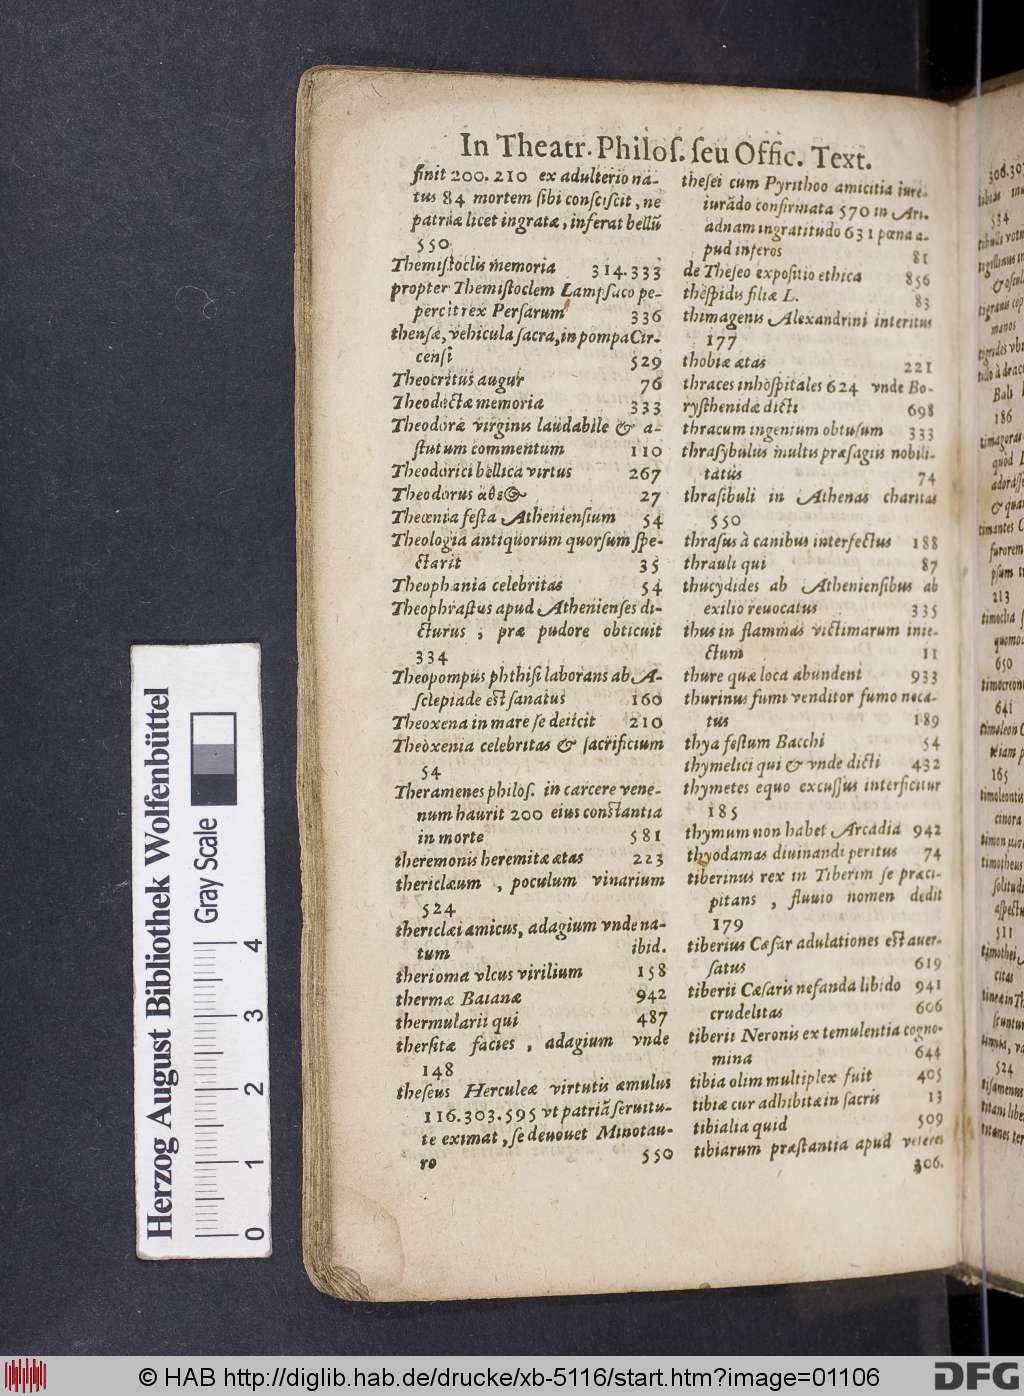 In Theatr. Philoſ. ſeu Offic. Text.
finit 200. 210 ex adulterio na-
tus 84 mortem ſibi conſciſcit, ne
patriæ licet ingratæ, inferat bellũ
550
Themiſtoclis memoria 314.333
propter Themiſtoclem Lampſaco pe-
percit rex Perſarum 336
thenſæ, vehicula ſacra, in pompa Cir-
cenſi 529
Theocritus augur 76
Theodectæ memoria 333
Theodoræ virginis laudabile & a-
ſtutum commentum 110
Theodorici bellica virtus 267
Theodorus 27
Theœnia feſta Athenienſium 54
Theologia antiquorum quorſum ſpe-
ctarit 35
Theophania celebritas 54
Theophraſtus apud Athenienſes di-
cturus, præ pudore obticuit
334
Theopompus phthiſi laborans ab A-
ſclepiade eſt ſanatus 160
Theoxena in mare ſe deiicit 210
Theoxenia celebritas & ſacrificium
54
Theramenes philoſ. in carcere vene-
num haurit 200 eius conſtantia
in morte 581
theremonis heremitæ ætas 223
thericlæum, poculum vinarium
524
thericlæi amicus, adagium vnde na-
tum ibid.
therioma vlcus virilium 158
thermæ Baianæ 942
thermularii qui 487
therſitæ facies, adagium vnde
148
theſeus Herculeæ virtutis æmulus
116.303.595 vt patriã ſeruitu-
te eximat, ſe deuouet Minotau-
ro 550
theſei cum Pyrithoo amicitia iure-
iurãdo confirmata 570 in Ari-
adnam ingratitudo 631 pœna a-
pud inferos 81
de Theſeo expoſitio ethica 856
theſpidis filiæ L. 83
thimagenis Alexandrini interitus
177
thobiæ ætas 221
thraces inhoſpitales 624 vnde Bo-
ryſthenidæ dicti 698
thracum ingenium obtuſum 333
thraſybulus multis præſagiis nobili-
tatus 74
thraſibuli in Athenas charitas
550
thraſus à canibus interfectus 188
thrauli qui 87
thucydides ab Athenienſibus ab
exilio reuocatus 335
thus in flammas victimarum inie-
ctum 11
thure quæ loca abundent 933
thurinus fumi venditor fumo neca-
tus 189
thya feſtum Bacchi 54
thymelici qui & vnde dicti 432
thymetes equo excuſſus interficitur
185
thymum non habet Arcadia 942
thyodamas diuinandi peritus 74
tiberinus rex in Tiberim ſe præci-
pitans, fluuio nomen dedit
179
tiberius Cæſar adulationes eſt auer-
ſatus 619
tiberii Cæſaris nefanda libido 941
crudelitas 606
tiberii Neronis ex temulentia cogno-
mina 644
tibia olim multiplex fuit 405
tibiæ cur adhibitæ in ſacris 13
tibialia quid 509
tibiarum præſtantia apud veteres
306.
534
186
213
650
641
165
511
524
Herzog August Bibliothek Wolfenbüttel
Gray Scale
0 1 2 3 4
© HAB http://diglib.hab.de/drucke/xb-5116/start.htm?image=01106
DFG